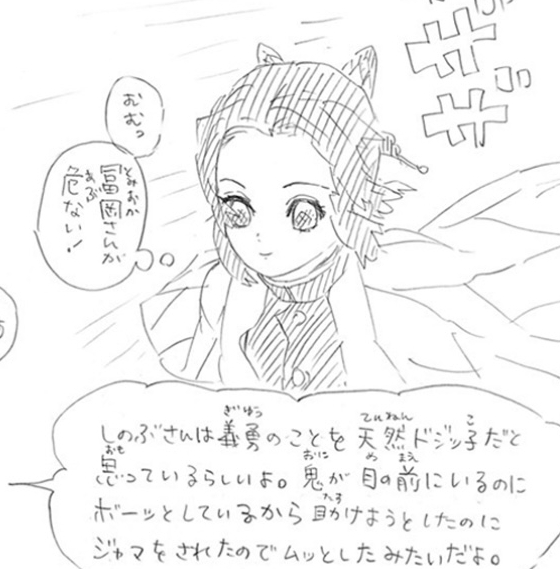 むむっ
冨岡さんが
危ない！
しのぶさんは義勇のことを天然ドジッ子だと
思っているらしいよ。鬼が目の前にいるのに
ボーッとしているから助けようとしたのに
ジャマをされたのでムッとしたみたいだよ。